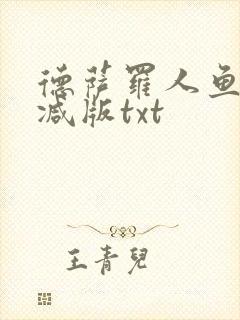 德萨罗人鱼
减版txt
王青儿